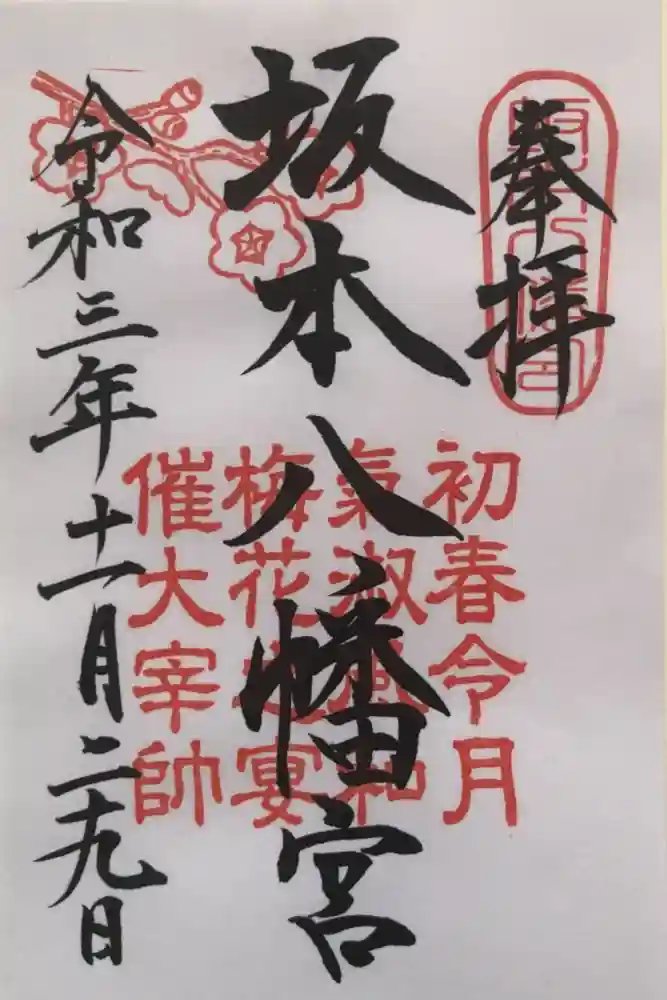 奉拝
坂本八幡宮
初春令月
氣淑風和
梅花之宴
催大宰帥
令和三年十一月二十九日